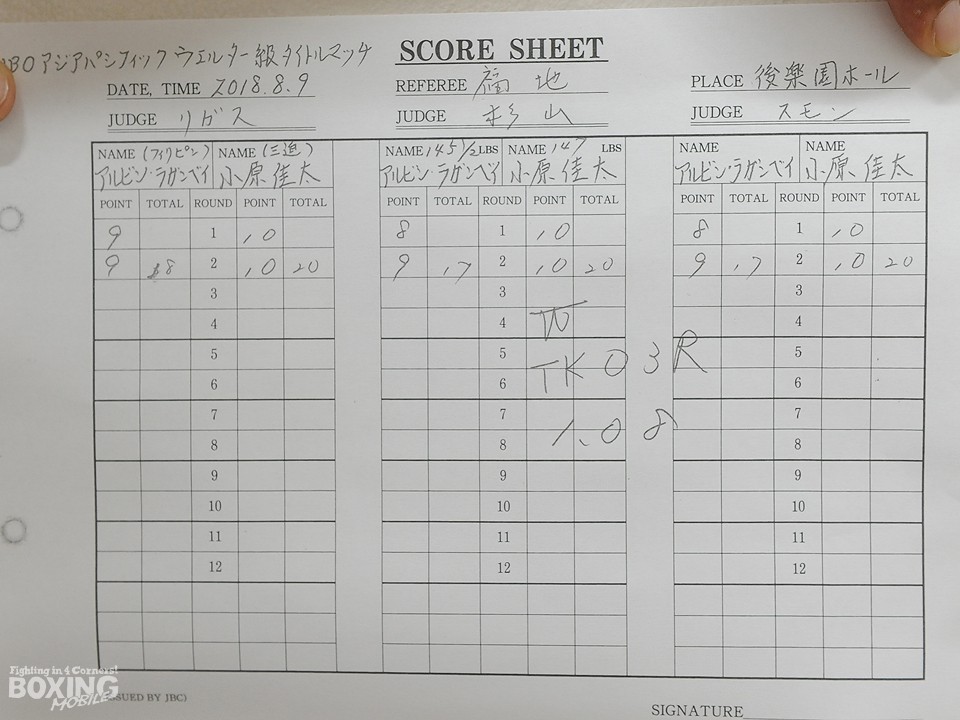 WBOアジアパシフィックウエルター級タイトルマッチ
SCORE SHEET
DATE, TIME 2018.8.9 REFEREE 福地 PLACE 後楽園ホール
JUDGE リガス JUDGE 杉山 JUDGE スモン
NAME (フィリピン) NAME (三迫) NAME 145 1/2 LBS NAME 147 LBS NAME NAME
アルビン・ラガンベイ 小原佳太 アルビン・ラガンベイ 小原佳太 アルビン・ラガンベイ 小原佳太
POINT TOTAL ROUND POINT TOTAL POINT TOTAL ROUND POINT TOTAL POINT TOTAL ROUND POINT TOTAL
9 1 10 8 1 10 8 1 10
9 18 2 10 20 9 17 2 10 20 9 17 2 10 20
3 3 3
4 4 W 4
5 5 5
TKO 3R
6 6 6
7 7 7
8 8 1.08 8
9 9 9
10 10 10
11 11 11
12 12 12
Fighting in 4 Corners!
BOXING
MOBILE
ISSUED BY JBC)
SIGNATURE